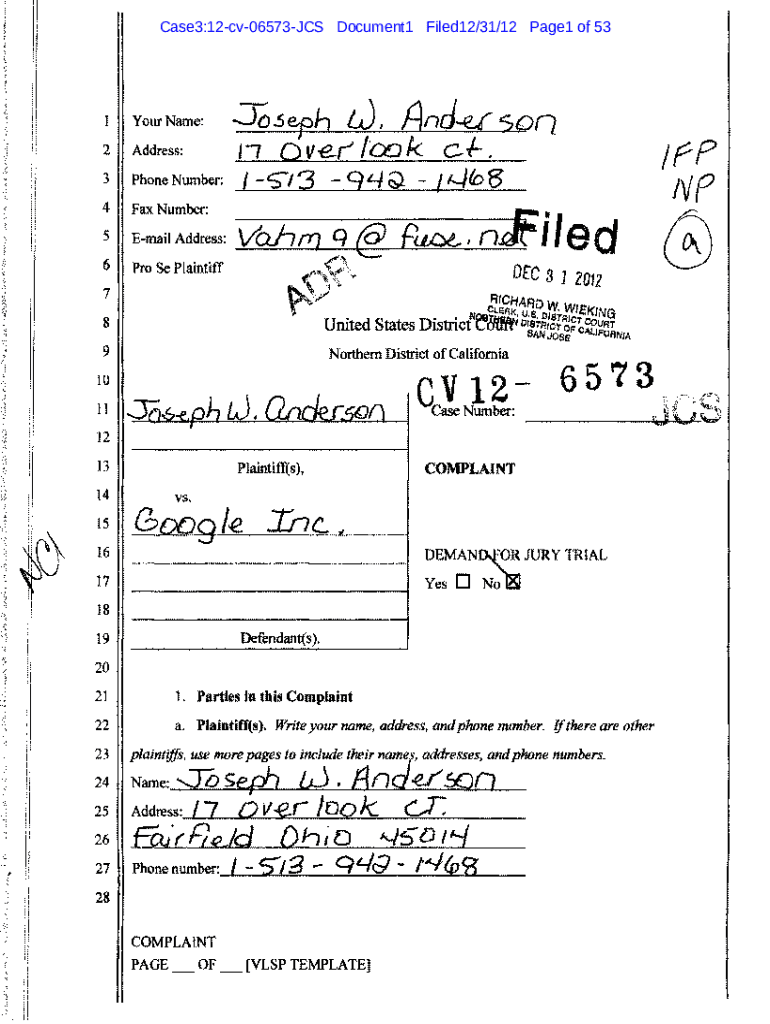 Case3:12-cv-06573-JCS Document1 Filed12/31/12 Page1 of 53
1 Your Name: Joseph W. Anderson
2 Address: 17 Overlook ct.
3 Phone Number: 1-513-942-1468
4 Fax Number:
5 E-mail Address: Vahm9@fuse.net
6 Pro Se Plaintiff
IFP
NP
a
Filed
DEC 31 2012
RICHARD W. WIEKING
CLERK, U.S. DISTRICT COURT
NORTHERN DISTRICT OF CALIFORNIA
SAN JOSE
ADR
7
8 United States District Court
9 Northern District of California
10
CV 12- 6573
11 Joseph W. Anderson Case Number:
JCS
12
13 Plaintiff(s), COMPLAINT
14 vs.
15 Google Inc.
16 DEMAND FOR JURY TRIAL
17 Yes ☐ No ☒
18
19 Defendant(s).
20
21 1. Parties in this Complaint
22 a. Plaintiff(s). Write your name, address, and phone number. If there are other
23 plaintiffs, use more pages to include their names, addresses, and phone numbers.
24 Name: Joseph W. Anderson
25 Address: 17 Overlook CT.
26 Fairfield Ohio 45014
27 Phone number: 1-513-942-1468
28
COMPLAINT
PAGE ___ OF ___ [VLSP TEMPLATE]